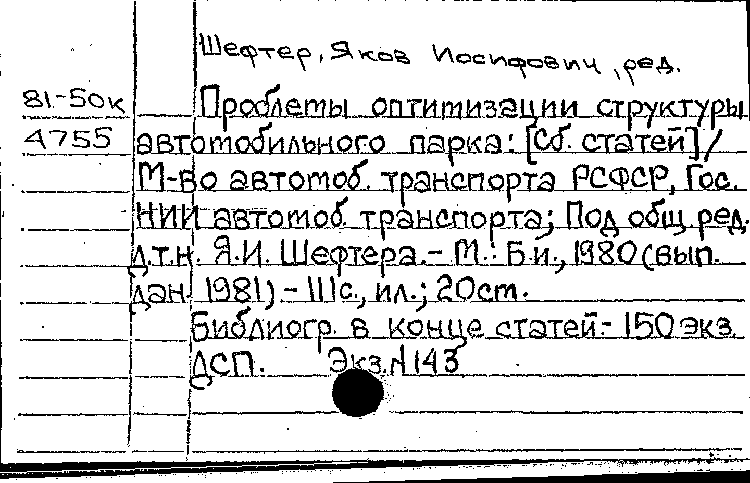 Шефтер, Яков Иосифович, ред.
81-50к Проблемы оптимизации структуры
4755 автомобильного парка: [Сб. статей] /
М-во автомоб. транспорта РСФСР, Гос.
НИИ автомоб. транспорта; Под общ. ред.
д.т.н. Я.И. Шефтера. - М.: Б.и., 1980 (вып.
дан. 1981). - 111 с., ил.; 20 ст.
Библиогр. в конце статей. - 150 экз.
ДСП. Экз. № 143